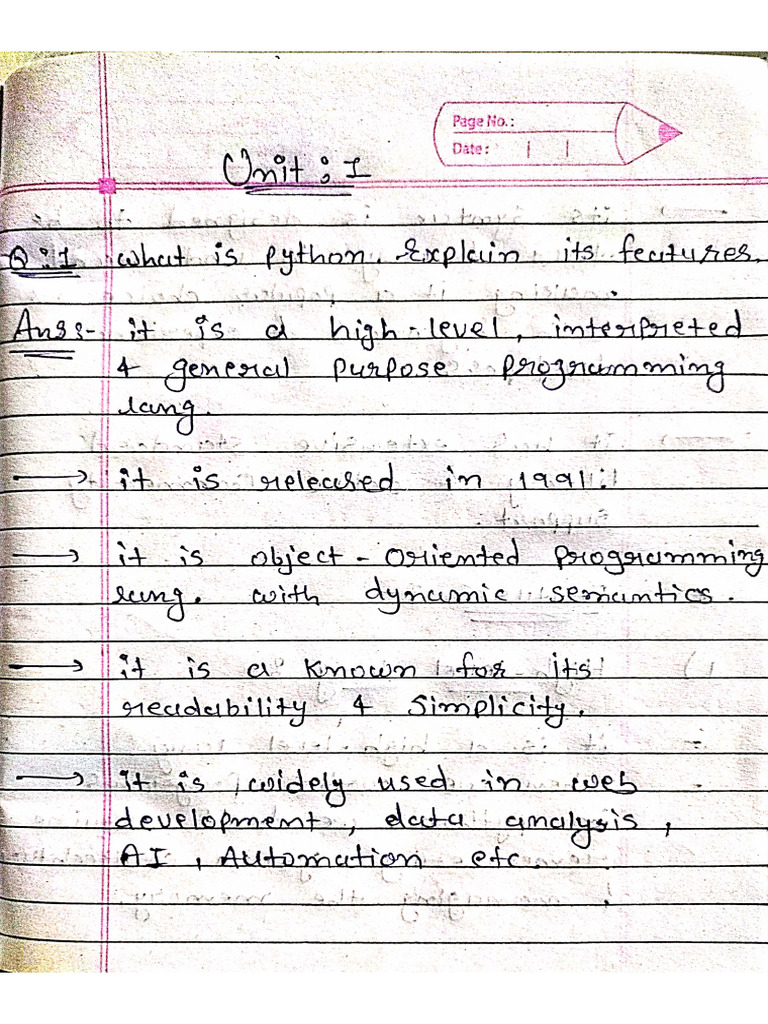 Page No.:
Date:
Unit : I
Q:1 What is python. Explain its features.
Ans:- it is a high-level, interpreted
& general purpose programming
lang.
→ it is released in 1991.
→ it is object-oriented programming
lang. with dynamic semantics.
→ it is a known for its
readability & Simplicity.
→ it is widely used in web
development, data analysis,
AI, Automation etc.